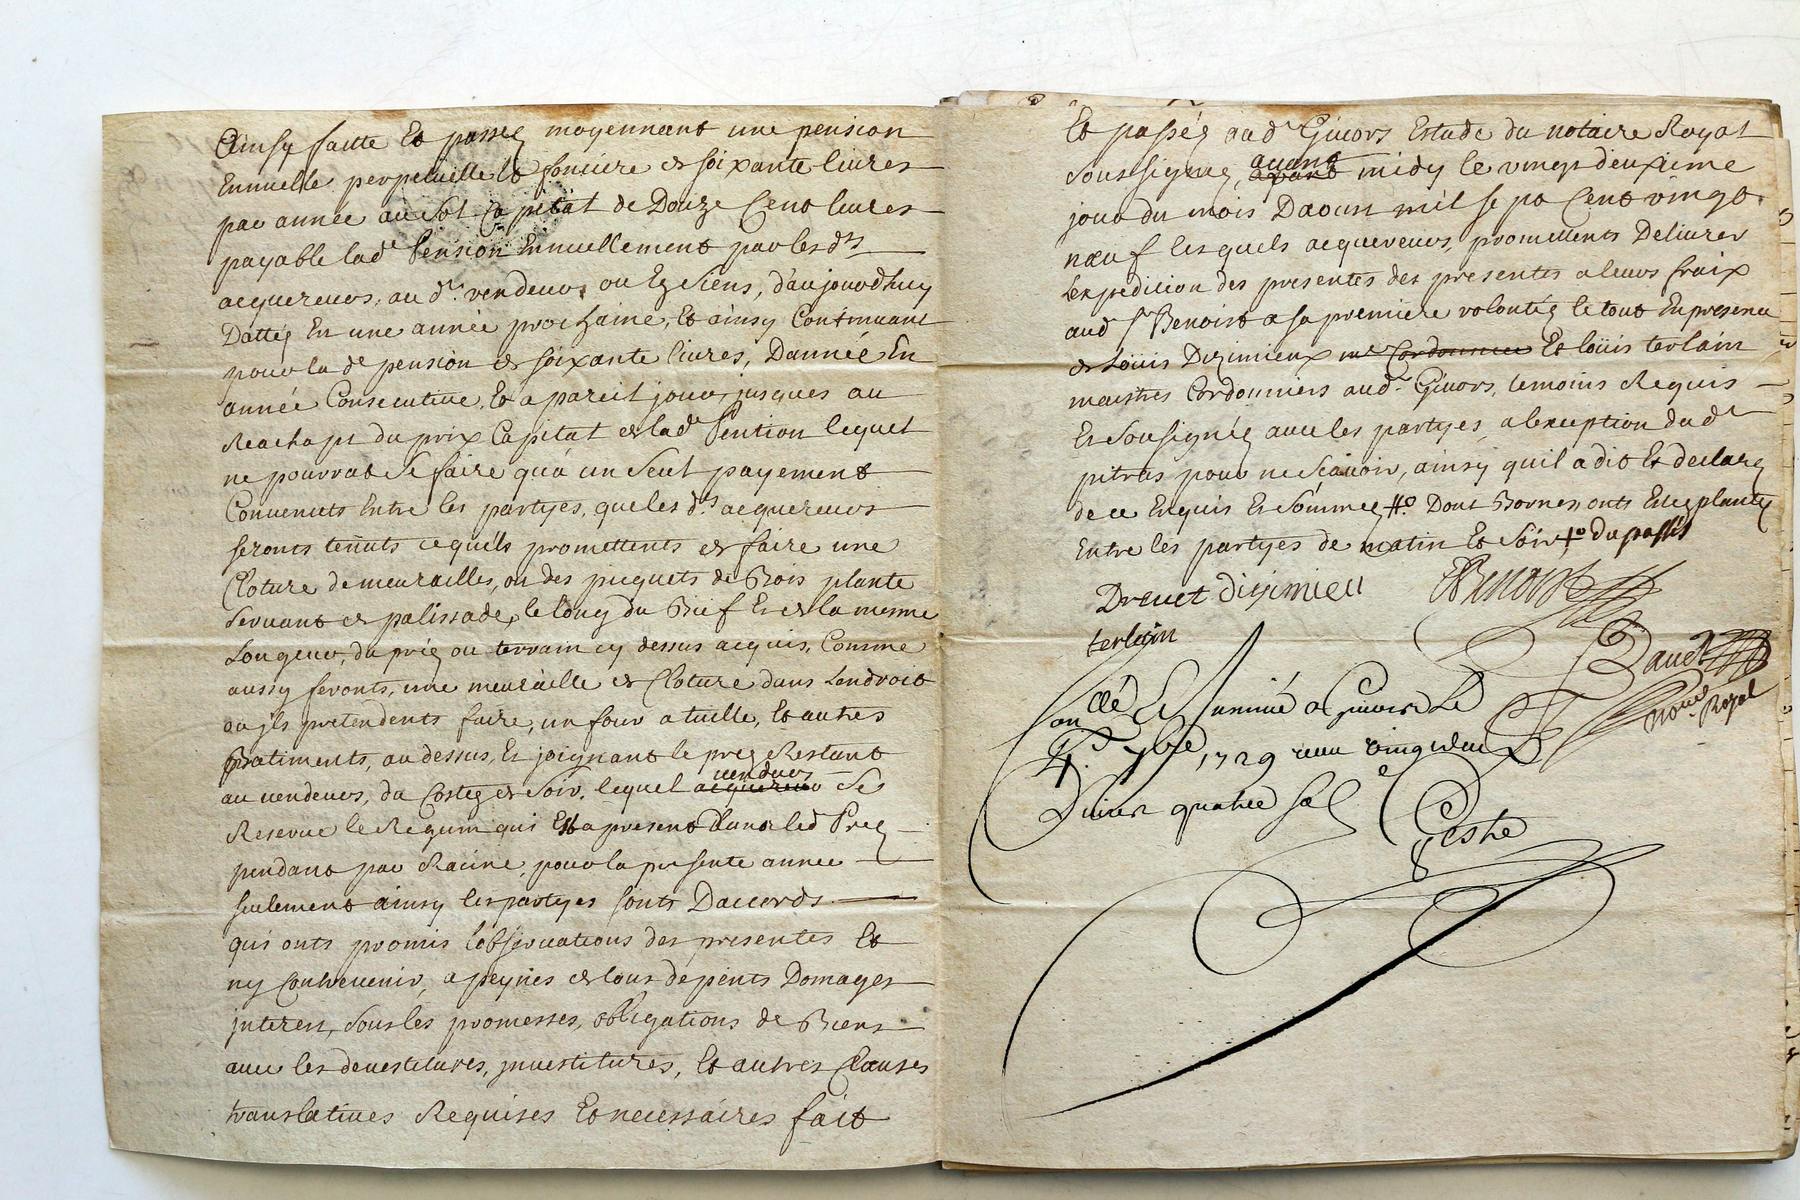 Ainsy faitte Et passeé moyennant une pension
Ennuelle perpetuelle Et fonciere de soixante livres
par année au sol Capital de Douze Cent livres
payable lad.e Pension Ennuellement par les d.ts
acquereurs, au d.t vendeur, ou Es siens, d'aujourdhuy
Dattéz En une année prochaine, Et ainsy Continuant
pour la d.e pension de soixante livres, Dannée En
année Consecutive, Et a pareil jour, jusques au
Reachapt du prix Capital de lad.e Pention lequel
ne pourrat se faire qu'a un seul payement
Convenuts Entre les partyes, que les d.ts acquereurs
seronts tenuts ce qu'ils promettents de faire une
Cloture de meurailles, ou des picquets de Bois plante
servant de palissade, le long du Bief Et de la mesme
Longeur, du préz ou terrain cy dessus acquis, Comme
aussy feronts, une meuraille de Cloture dans Lendroit
ou jls pretendents faire, un four a tuille, Et autres
Batiments, au dessus, Et joignant le prez Restant
au vendeur, du Costez de soir, lequel acquereur vendeur Se
Reserve le Regum qui Est a present dans led Prez
pendant par Racine, pour la presente année
seulement ainsy les partyes sonts Daccords
qui onts promis l'observations des presentes Et
ny Contrevenir, a peynes de tous depents Domages
jnterest, sous les promesses, obligations de Biens
avec les devestitures, jnvestitures, Et autres Clauses
translatives Requises Et necessaires fait
Et passéz aud.t Givors Estude du notaire Royal
soussigné, avant avant midy le vingt deuxieme
jour du mois Daoust mil sept Cent vingt
nœuf lesquels acquereurs, promettents Delivrer
Lexpedition des presentes des presentes a leurs fraix
aud.t s.r Benoist a sa premiere volontéz le tout En presence
de Loüis Dizimieux me Cordonnier Et loüis terlain
maistres Cordonniers aud.t Givors, temoins Requis
Et sousignéz avec les partyes, a lexception dud.t
pitras pour ne sçavoir, ainsy quil a dit Et declaréz
de ce Enquis Et sommez #o Dont Bornes onts Estez plantez
Entre les partyes de matin Et soir +o du passis
Drevet disimieu Benoist
terlain
Davet
no.re Royal
Conllé Et Insinué a Givors Le
4.e 7bre 1729 reçu vingt deux
Livres quatre sols
Geste